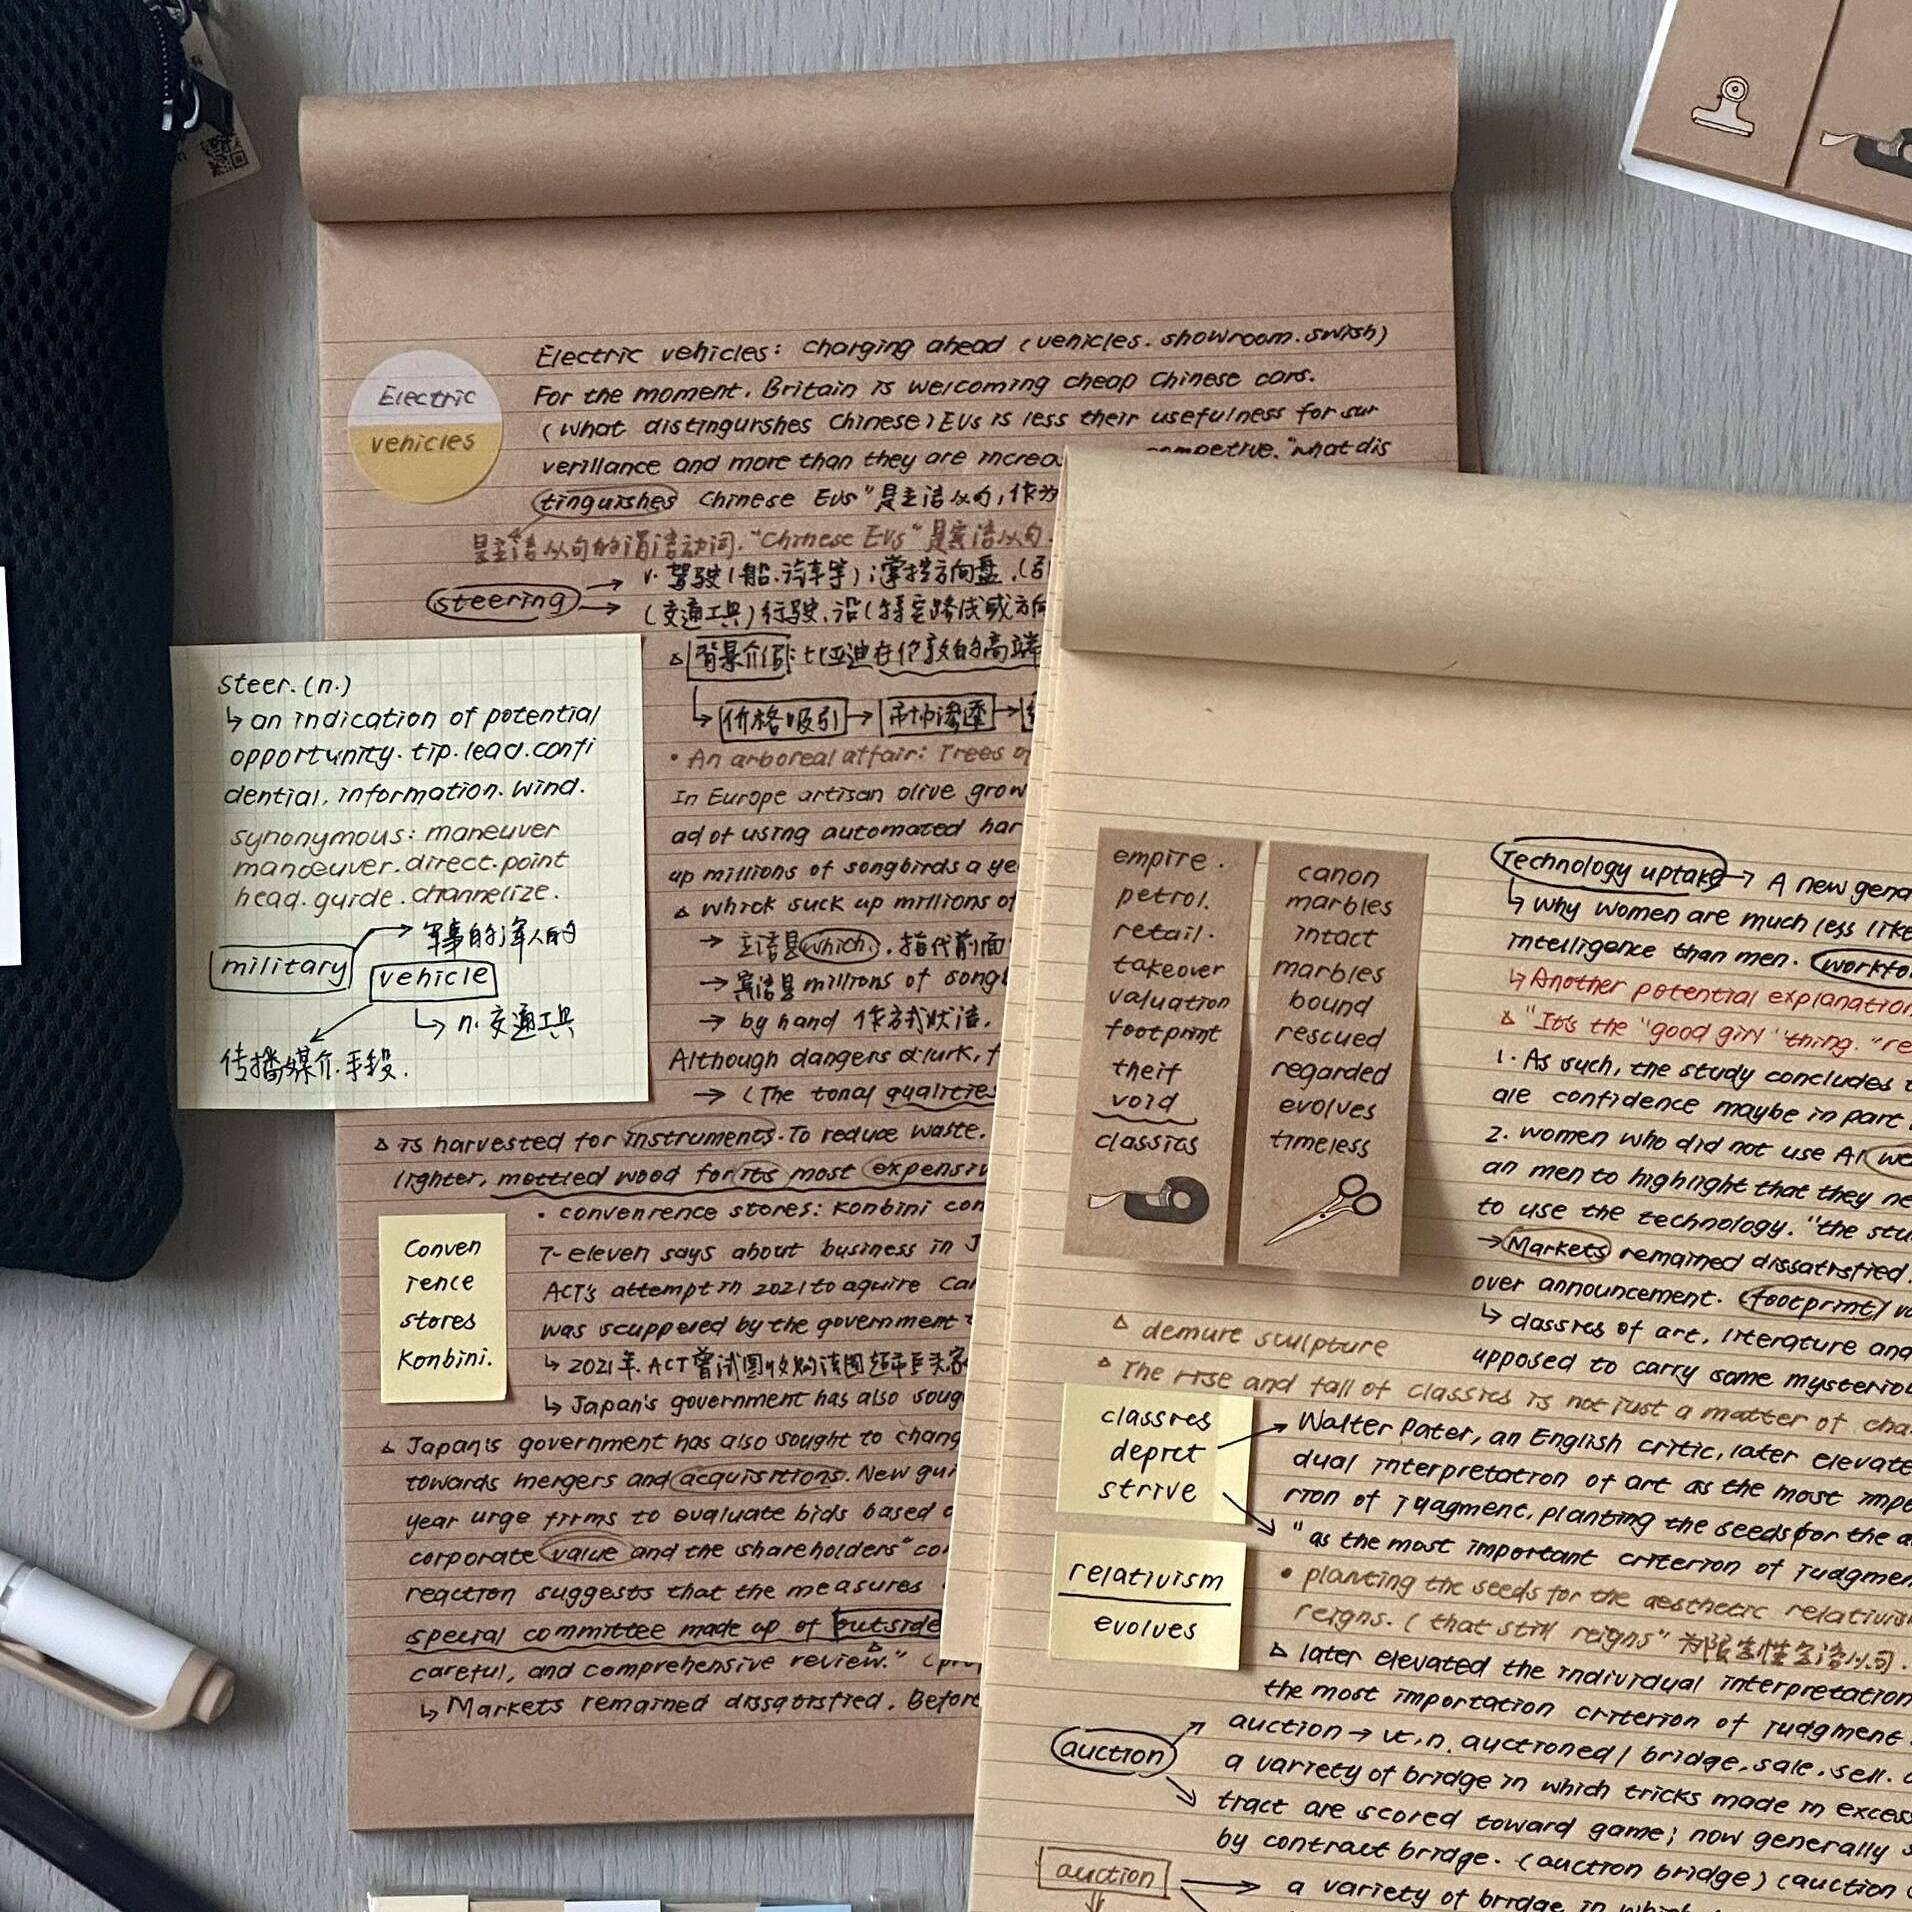 Electric
vehicles
Electric vehicles: charging ahead (vehicles. showroom. swish)
For the moment. Britain is welcoming cheap Chinese cars.
(What distinguishes Chinese) EVs is less their usefulness for sur
verillance and more than they are increa competive. "what dis
tinguishes Chinese EVs" 是主语从句, 作为
是主语从句的谓语动词. "Chinese EVs" 是宾语从句.
steering
v. 驾驶 (船. 汽车等); 掌控方向盘.
(交通工具) 行驶. 沿 (特定路线或方向
△ 背景介绍: 比亚迪在伦敦的高端
↳ 价格吸引 → 市场渗透 →
• An arboreal affair: Trees
In Europe artisan olive grow
ad of using automated har
up millions of songbirds a ye
△ which suck up millions of
→ 主语是 which. 指代前面
→ 宾语是 millions of song
→ by hand 作方式状语.
Although dangers lurk,
→ (The tonal qualities
△ is harvested for instruments. To reduce waste.
lighter, mottled wood for its most expensiv
• convenrence stores: Konbini con
7-eleven says about business in J
ACT's attempt in 2021 to aquire Ca
was scuppered by the government
↳ 2021年. ACT 曾试图收购该国超市巨头
↳ Japan's government has also soug
△ Japan's government has also sought to chang
towards mergers and acquisitions. New gui
year urge firms to evaluate bids based
corporate value and the shareholders" co
reaction suggests that the measures
special committee made up of outside
careful, and comprehensive review."
↳ Markets remained dissatisfied. Before
steer. (n.)
↳ an indication of potential
opportunity. tip. lead. confi
dential, information. wind.
synonymous: maneuver
manoeuver. direct. point
head. guide. channelize.
military → 军事的; 军人的
vehicle
↳ n. 交通工具
传播媒介. 手段.
Conven
rence
stores
Konbini.
empire.
petrol.
retail.
takeover
valuation
footprint
theit
void
classics
canon
marbles
intact
marbles
bound
rescued
regarded
evolves
timeless
Technology uptake → A new gend
↳ why women are much less like
intelligence than men. workfo
↳ Another potential explanation
△ "It's the "good girl" thing. "re
1. As such, the study concludes
ale confidence maybe in part
2. women who did not use AI we
an men to highlight that they ne
to use the technology. "the stu
→ Markets remained dissatisfied.
over announcement. footprint/ v
↳ classics of art, literature and
upposed to carry some mysteriou
△ demure sculpture
△ The rise and fall of classics is not just a matter of cha
classres
depict
strive
Walter Pater, an English critic, later elevate
dual interpretation of art as the most impo
rion of judgment, planting the seeds for the a
"as the most important criterion of judgmen
relativism
evolves
• planting the seeds for the aesthetic relativis
reigns. (that still reigns" 为限定性定语从句.
△ later elevated the individual interpretation
the most importation criterion of judgment.
auction
auction → vt, n. auctioned / bridge, sale. sell.
a variety of bridge in which tricks made in excess
tract are scored toward game; now generally
by contract bridge. (auction bridge) (auction
auction
a variety of bridge in which